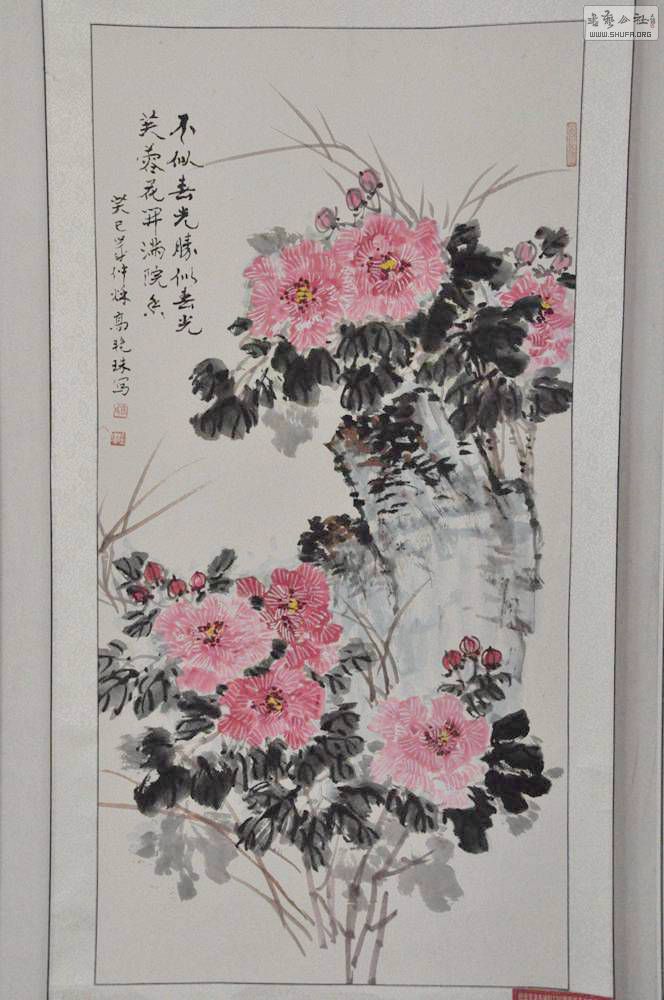 不似春光胜似春光
芙蓉花开满院香
癸巳年仲秌高艳珠写
书艺公社
WWW.SHUFA.ORG